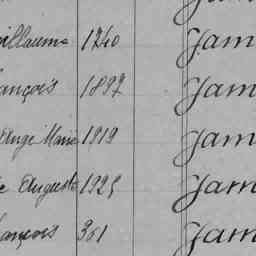 uillaume 1240 Jam
ançois 1897 Jam
Ange Marie 1919 Jam
Auguste 1925 Jam
ançois 361 Jam